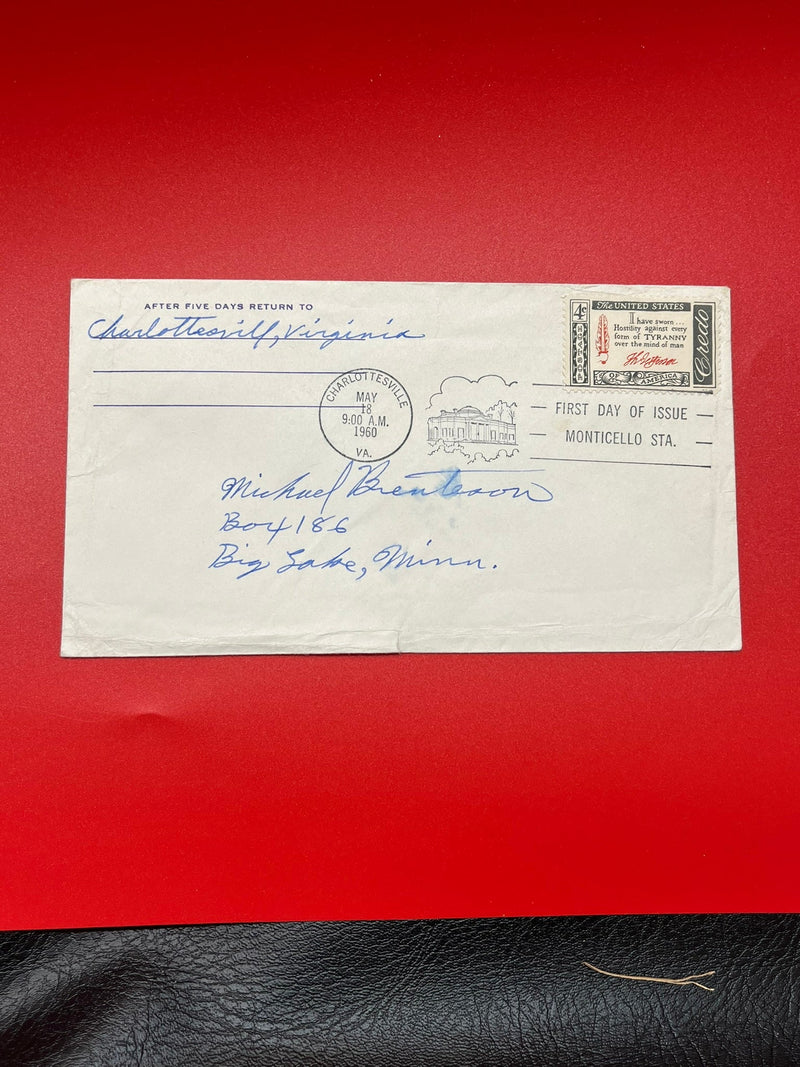 AFTER FIVE DAYS RETURN TO
Charlottesville, Virginia
CHARLOTTESVILLE
MAY
18
9:00 A.M.
1960
VA.
4c
The UNITED STATES
I have sworn...
Hostility against every
form of TYRANNY
over the mind of man
Th Jefferson
OF AMERICA
Credo
FIRST DAY OF ISSUE
MONTICELLO STA.
Michael Brenteson
Box 186
Big Lake, Minn.